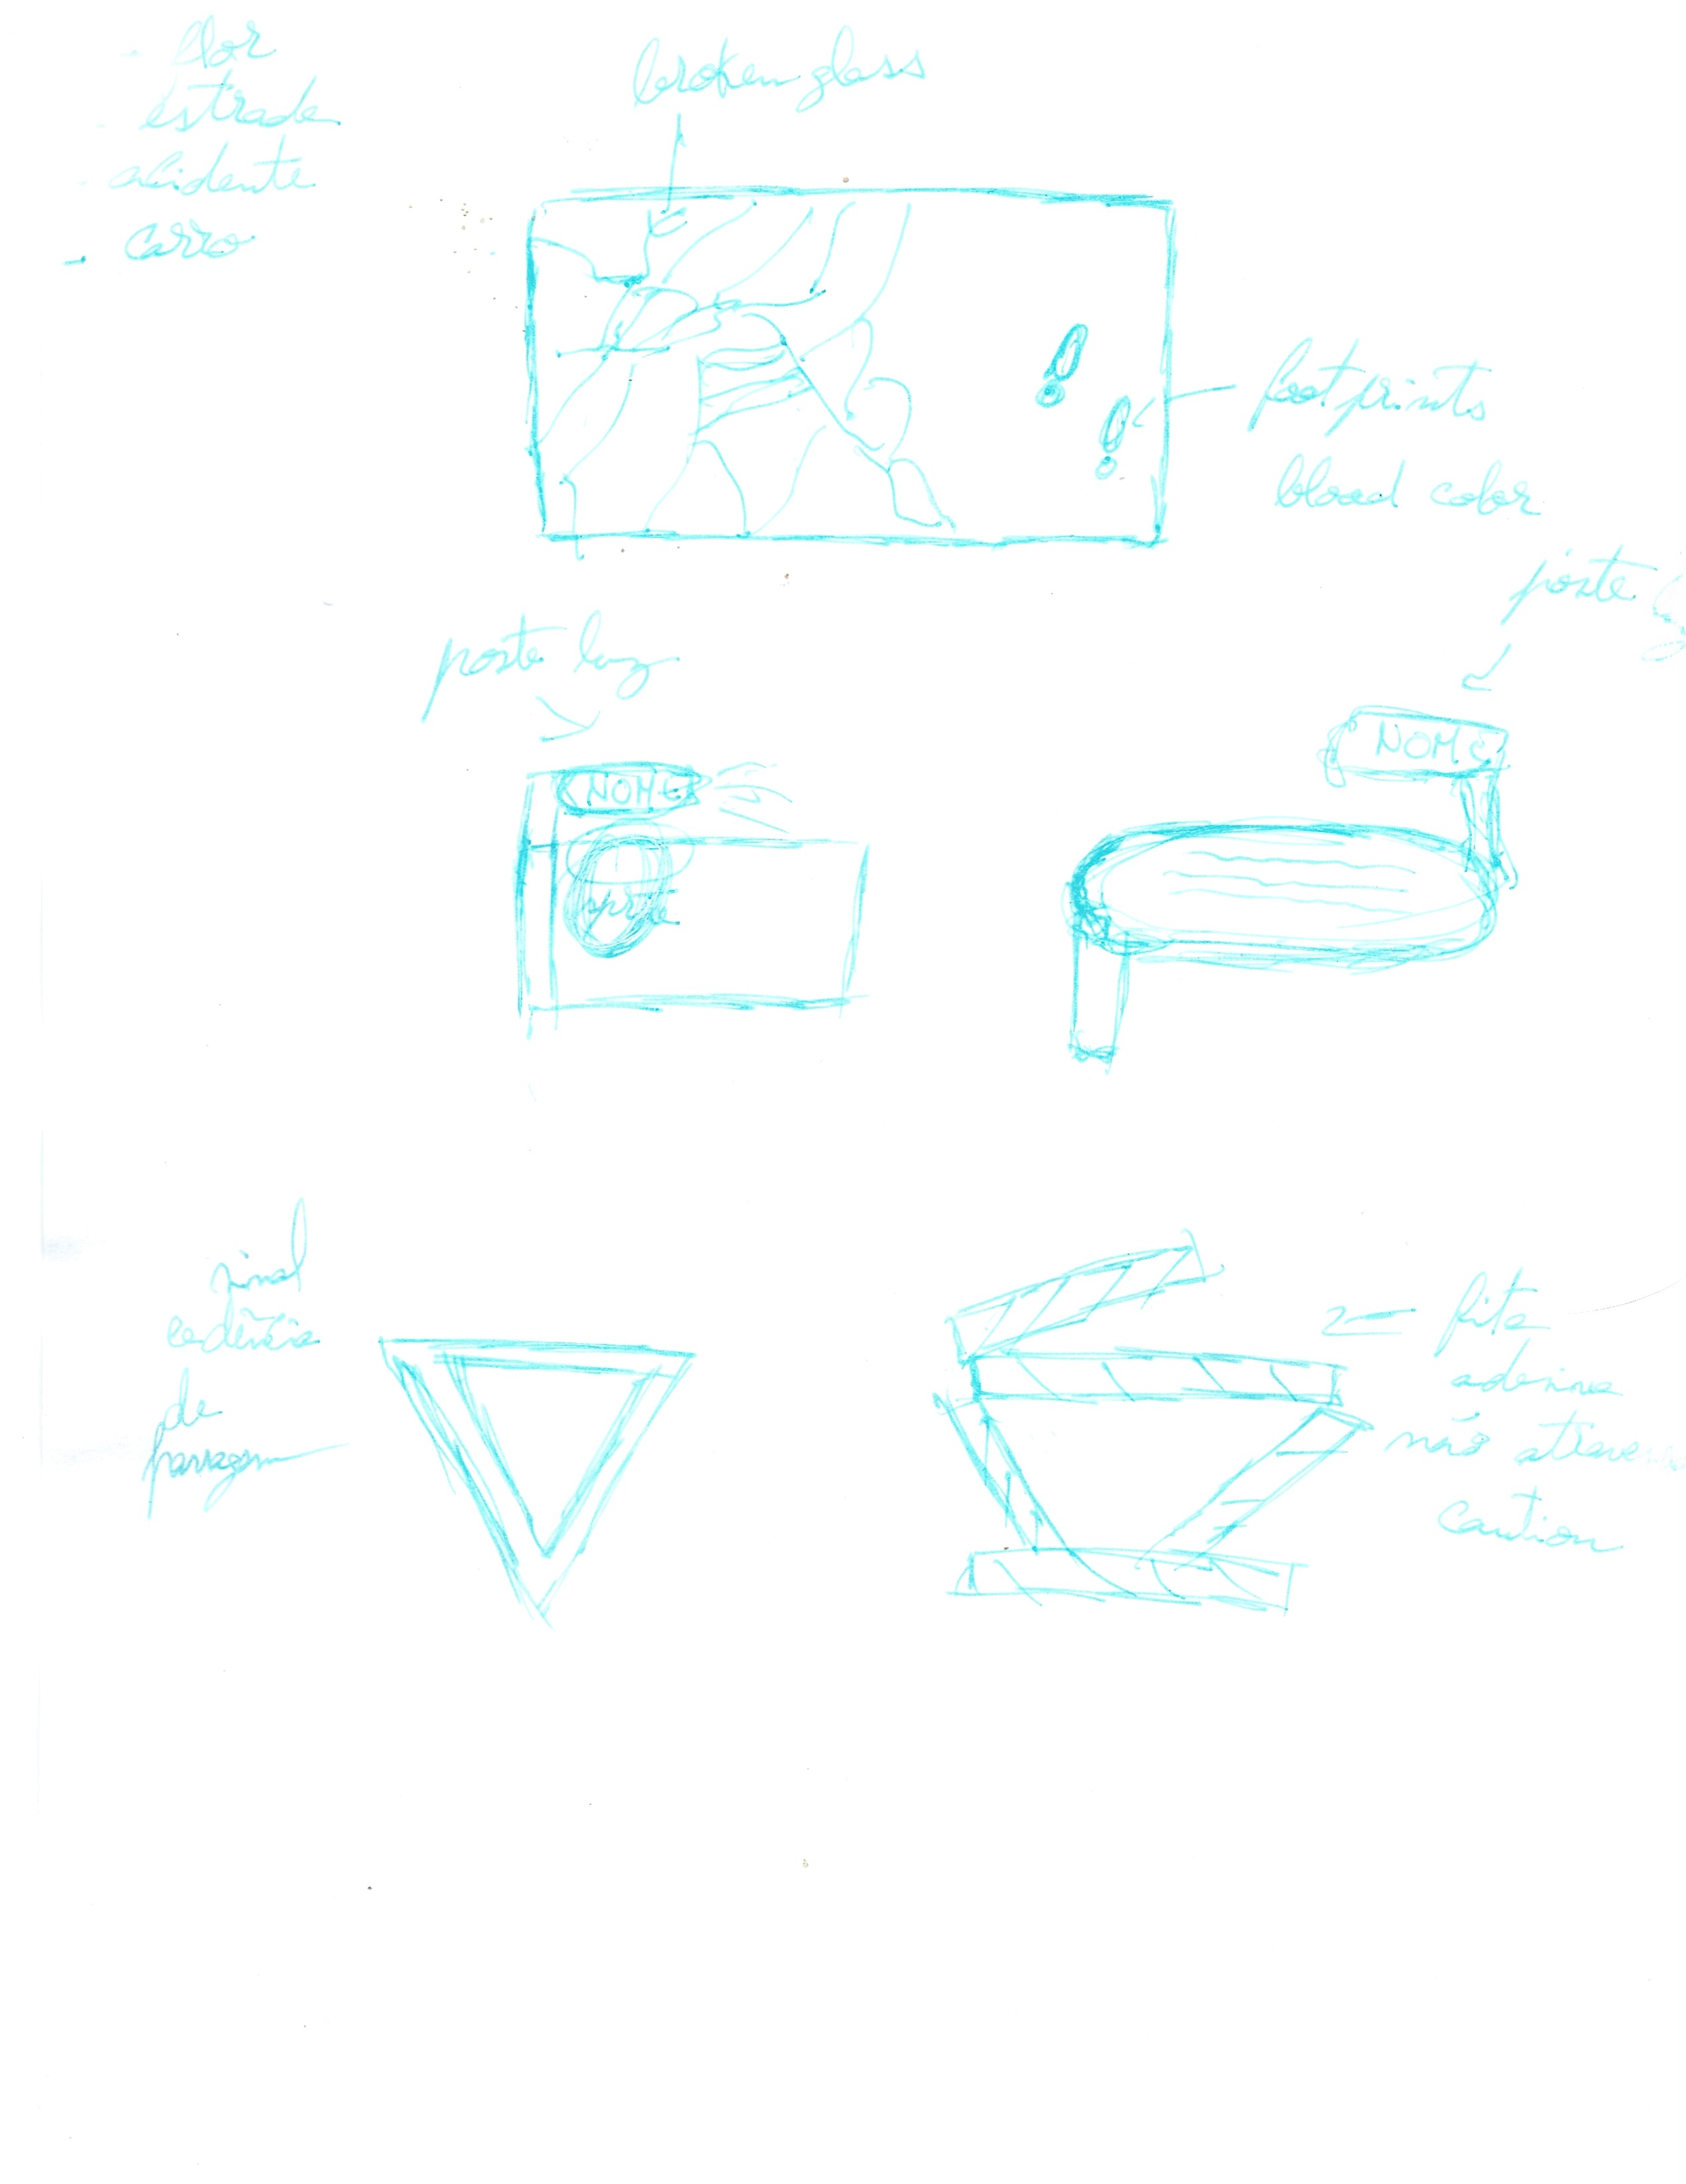 - flor
- estrada
- acidente
- carro
broken glass
footprints
blood color
poste luz
poste
NOME
NOME
sinal
cedência
de
paragem
fita
adesiva
não atraves
caution